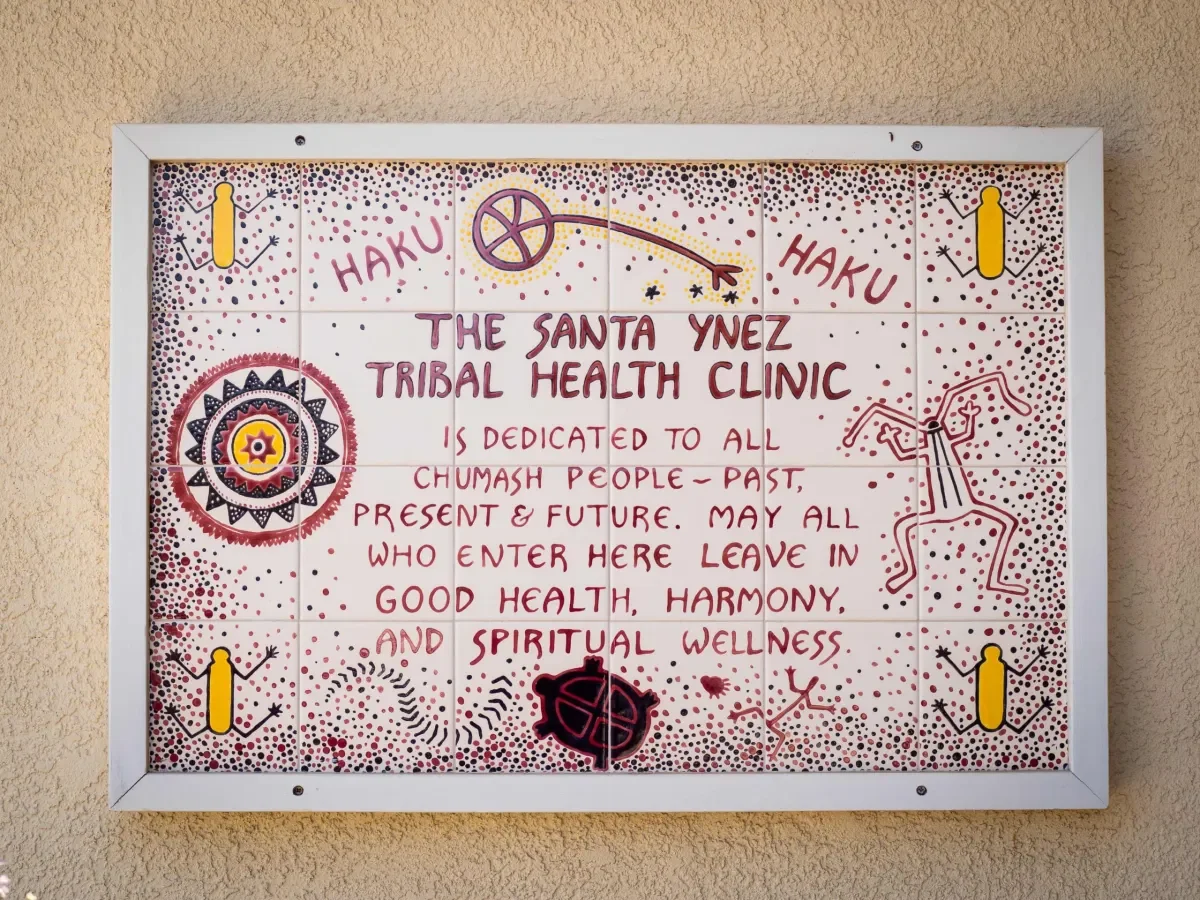 HAKU HAKU
THE SANTA YNEZ
TRIBAL HEALTH CLINIC
IS DEDICATED TO ALL
CHUMASH PEOPLE ~ PAST,
PRESENT & FUTURE. MAY ALL
WHO ENTER HERE LEAVE IN
GOOD HEALTH, HARMONY,
AND SPIRITUAL WELLNESS.